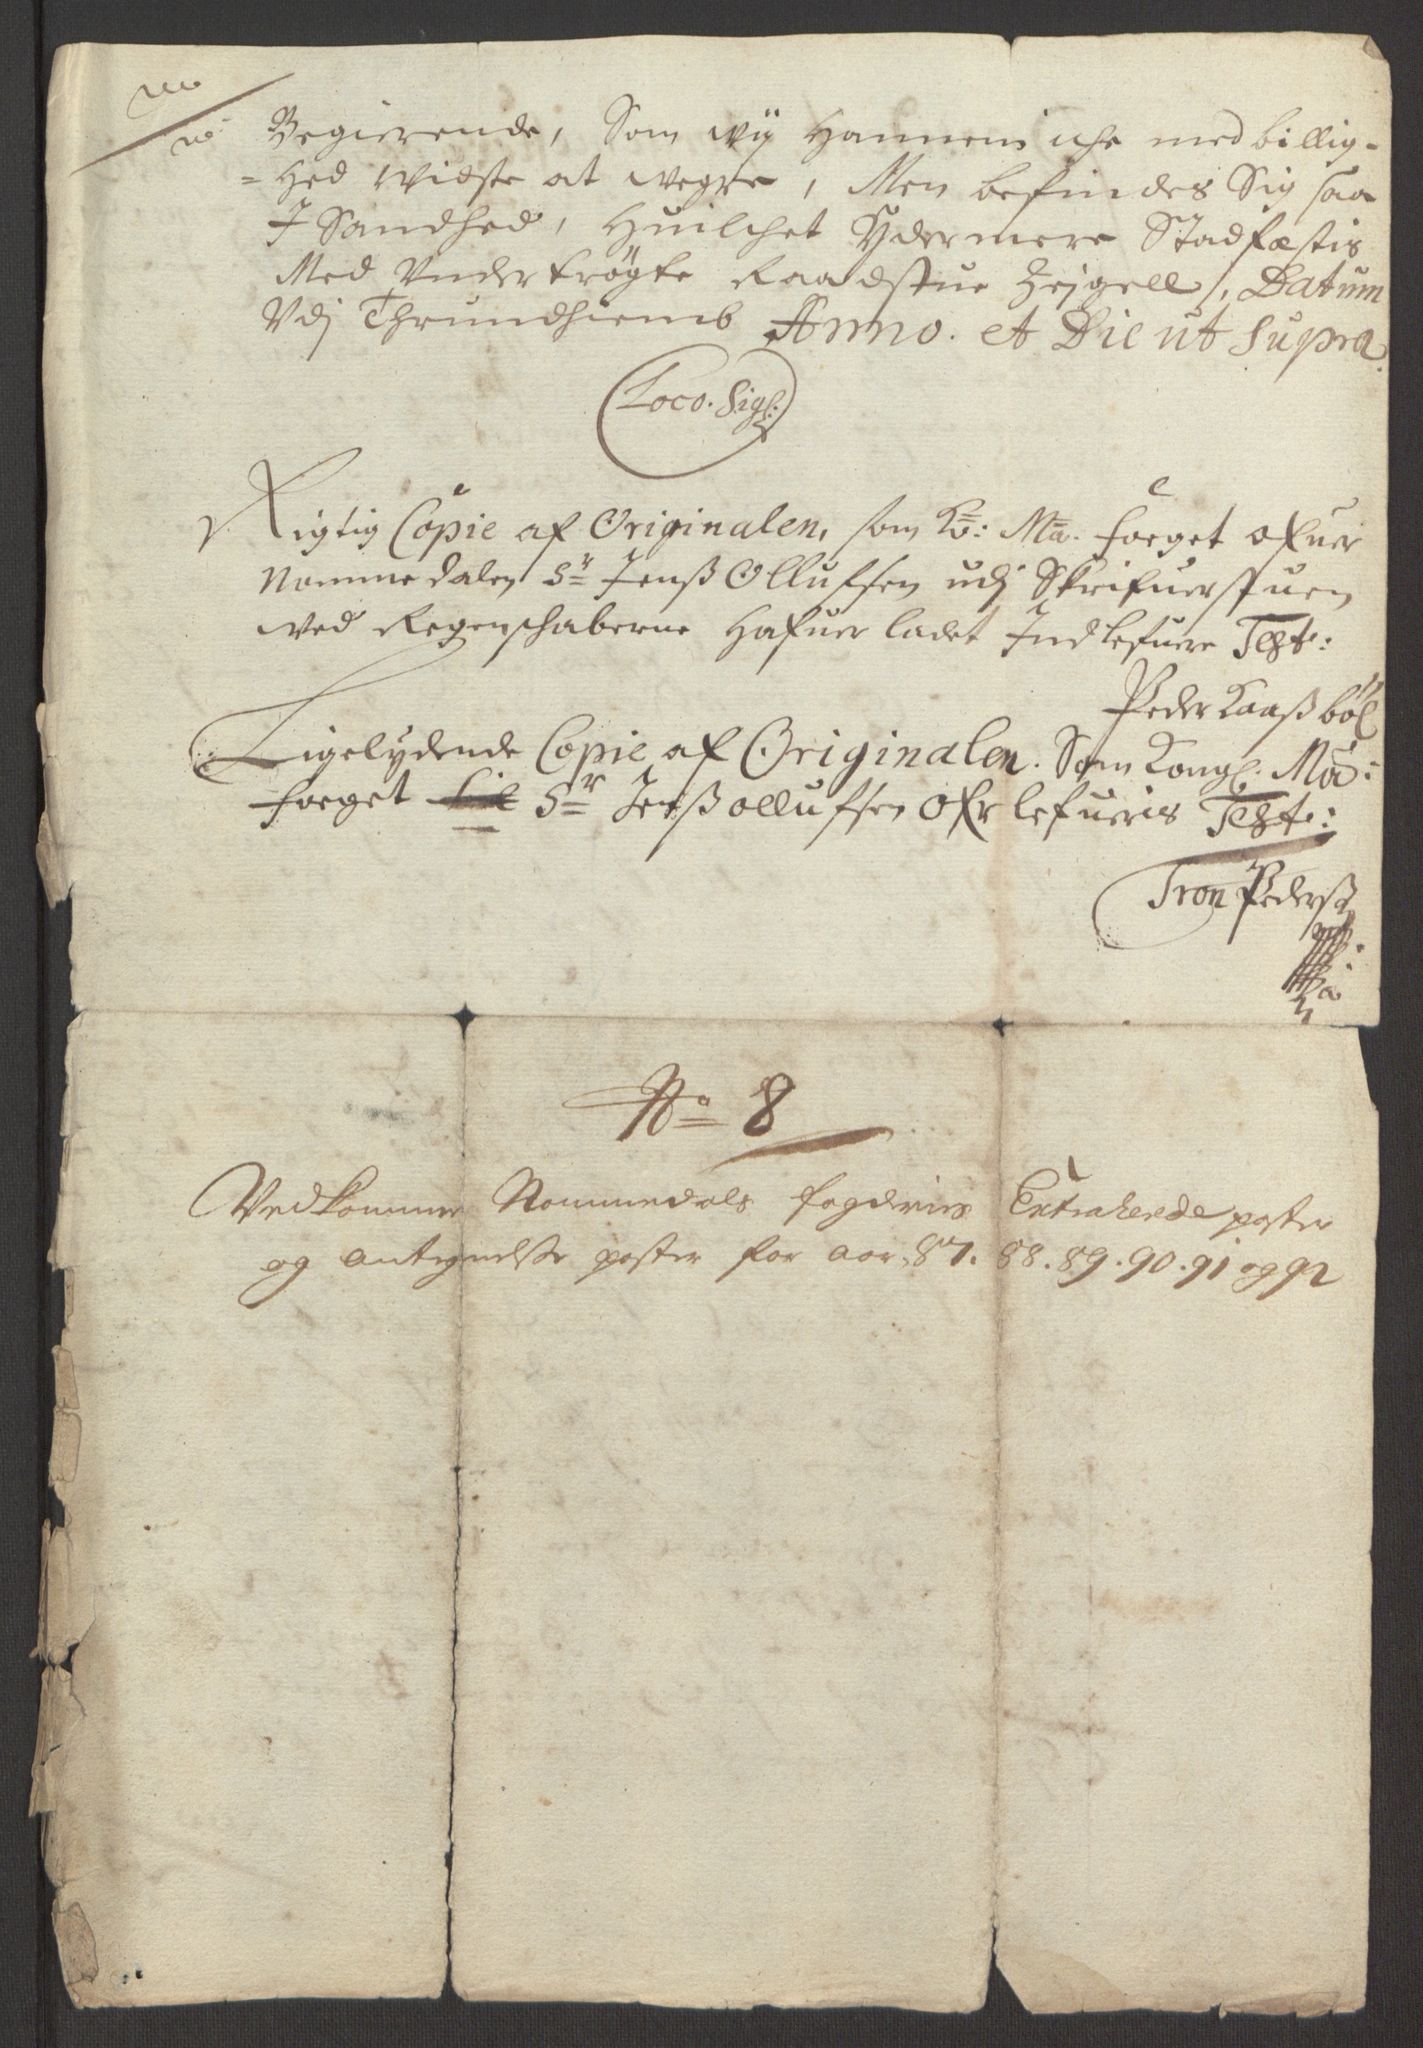 Begierende, Som wij Hannem iche med billig-
=Hed Widste at wegre, Men befindes Sig saa
J Sandhed, Huilchet Ydermere Stadfæstis
Med Vndertrøgte Raadstue Zejgell, Datum
Vdj Thrundhiemb Anno. et Die ut Supra.
Loco. Sigl:
Rigtig Copie af Originalen, som Ko: Ma. Foeget ofuer
Nommedalen Sr Jenß Olluffsen udj Skrifuerstuen
wed Regenschaberne Hafuer ladet Jndlefuere Test:
Peder Kaaßbøl
Ligelydende Copie af Originalen. Som Kongl. Ma:
Foeget Sr Jenß olluffsen ofr lefueris Test:
Tron Pederß
No 8
Vedkommer Nommedals fogderies Extraherede poster
og Antegnelse poster for aar 87. 88. 89. 90. 91 og 92